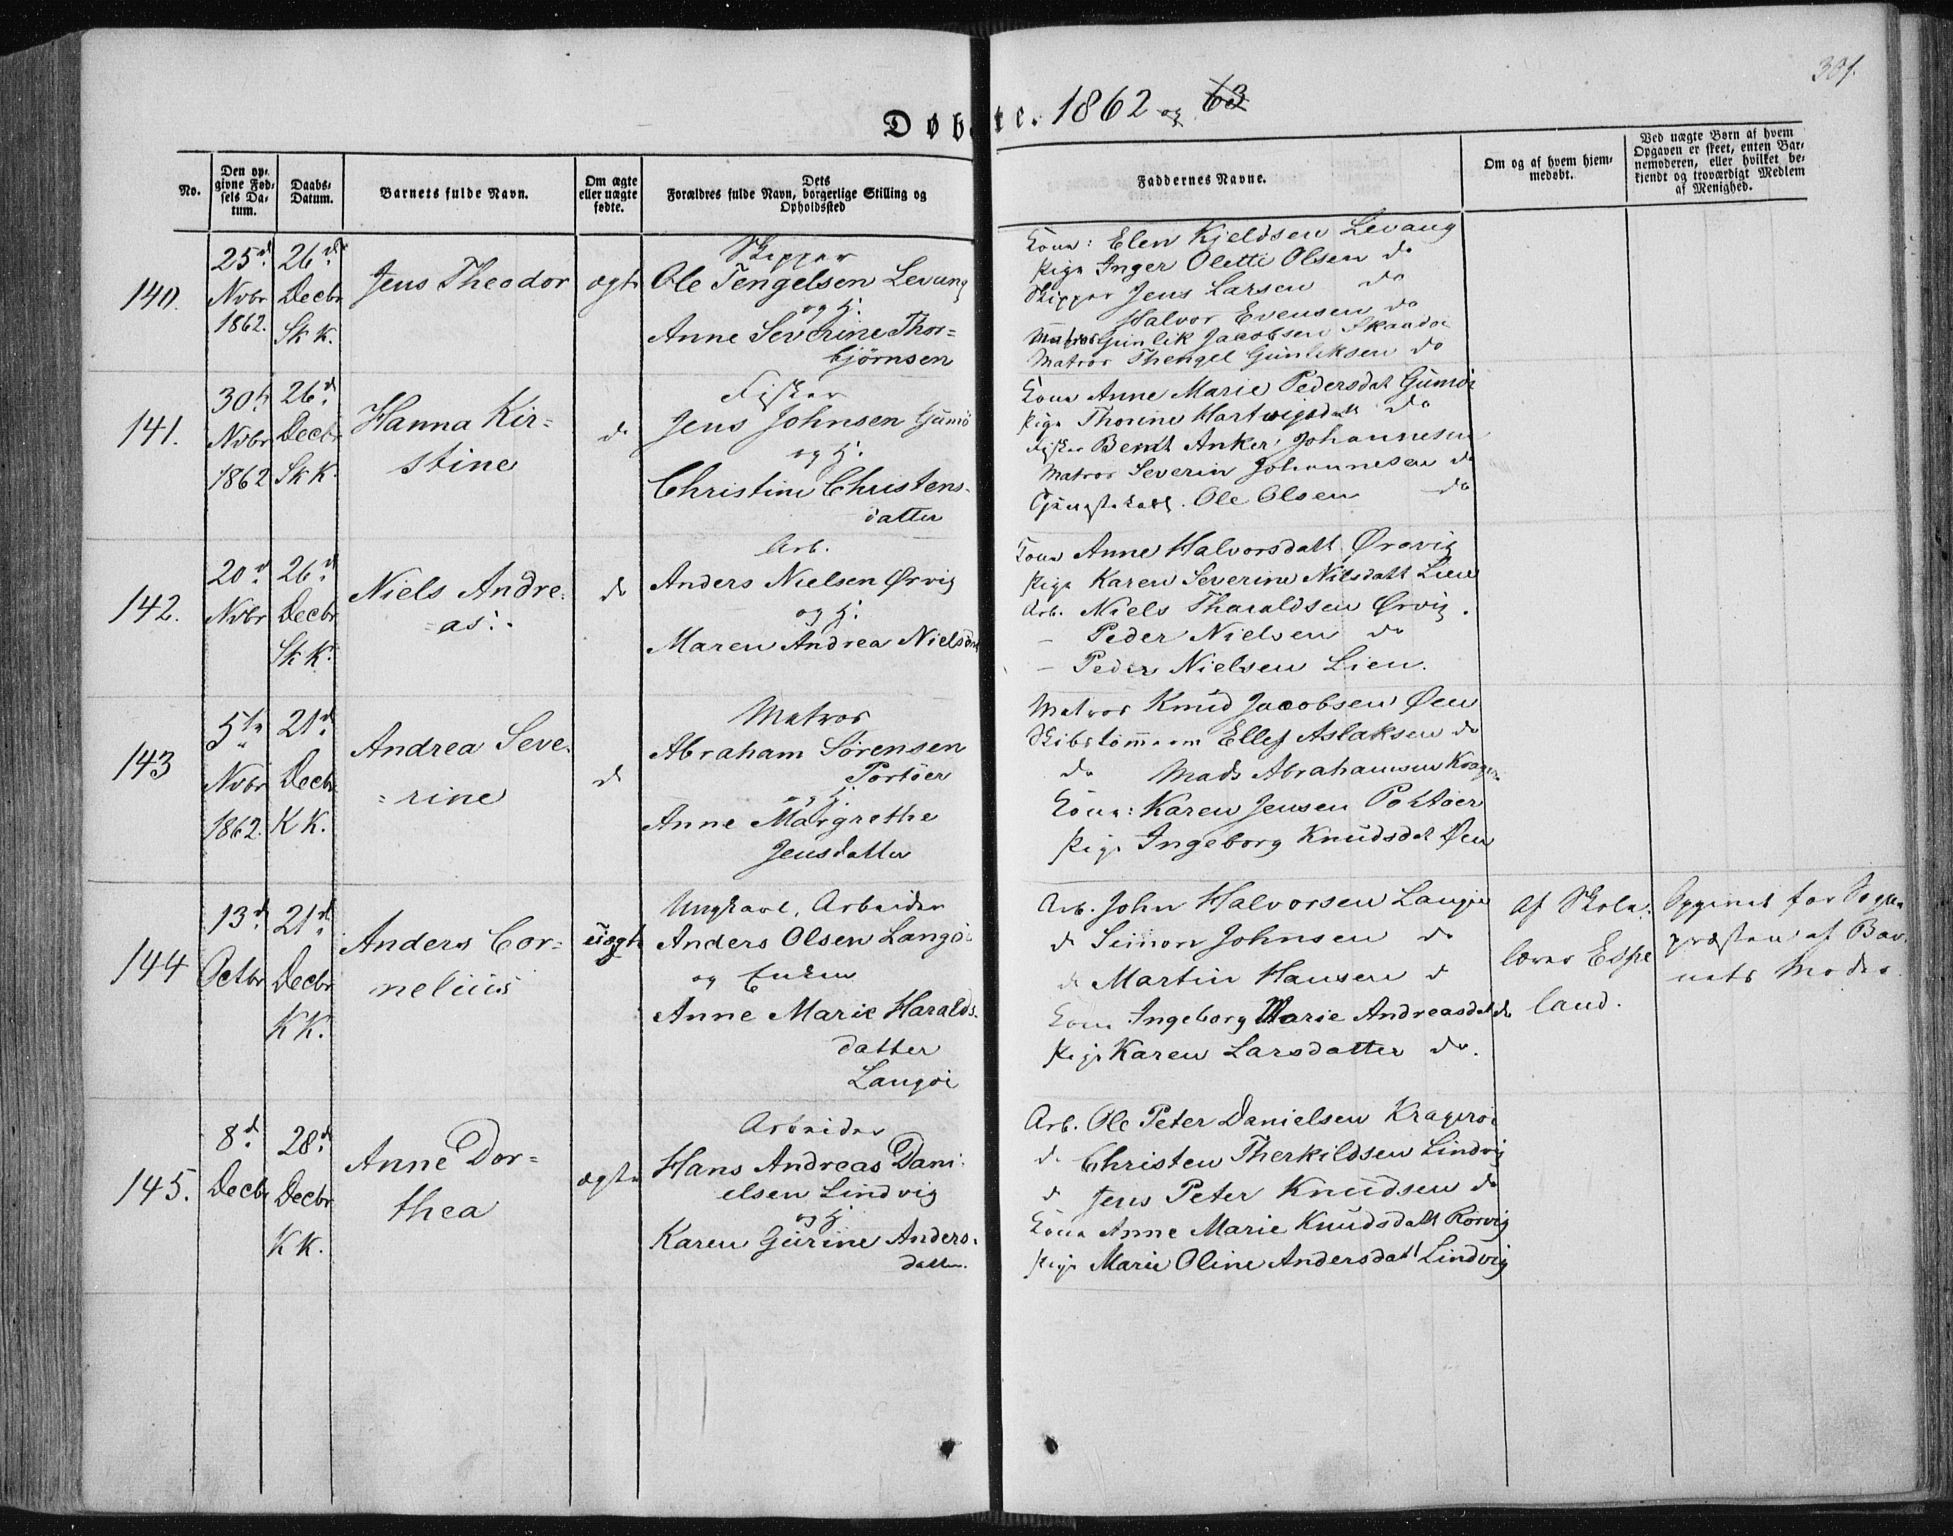 301.
Døbte. 1862 og 63
No.
Den op-
givne Fød-
sels Da-
tum.
Daabs-
Datum.
Barnets fulde Navn.
Om ægte
eller uægte
fødte.
Dets
Forældres fulde Navn, borgerlige Stilling og
Opholdssted
Faddernes Navne.
Om og af hvem hjem-
medøbt.
Ved uægte Børn af hvem
Opgaven er skeet, enten Bar-
nemoderen, eller hvilket be-
kjendt og troværdigt Medlem
af Menighed.
140.
25d
Nvbr
1862.
26d
Decbr
Sk K.
Jens Theodor
ægte
Skipper
Ole Tengelsen Levang
og H.
Anne Severine Thor=
bjørnsen
Kone: Elen Kjeldsen Levang
Pige Inger Oletti Olsen do
Skipper Jens Larsen do
Halvor Evensen do
Matros Gunlik Jacobsen Skaadøi
Matros Thengel Gunliksen do
141.
30te
Nvbr
1862
26d
Decbr
Sk K.
Hanna Kir=
stine
do
Fisker
Jens Johnsen Gumø
og H.
Christine Christens-
datter
Kone Anne Marie Pedersdat Gumøi
Pige Thorine Hartvigsdatt do
Fisker Bernt Anker Johannesen
Matros Severin Johannesen do
Tjenestekarl. Ole Olsen do
142.
20d
Nvbr
26d
Decbr
Sk K.
Niels Andre=
=as.
do
Arb.
Anders Nielsen Ørvig
og H.
Maren Andrea Nielsdat
Kone Anne Halvorsdatt Ørovig
Pige Karen Severine Nilsdatt Lien
Arb. Niels Tharaldsen Ørvig.
- Peder Nielsen do
- Peder Nielsen Lien.
143
5te
Nvbr
1862.
21d
Decbr
K K.
Andrea Seve=
=rine
do
Matros
Abraham Sørensen
Portøer
og H.
Anne Margrethe
Jensdatter
Matros Knud Jacobsen Øen
Skibstømmerm Ellef Aslaksen do
do Mads Abrahamsen Kragerø
Kone: Karen Jensen Portøer
Pige Ingeborg Knudsdat Øen
144
13d
Octbr
21d
Decbr
K K.
Anders Cor=
nelius
uægte
Ungkarl, Arbeider
Anders Olsen Langøi
og Enken
Anne Marie Haralds-
datter
Langøi
Arb. John Halvorsen Langøi
do Simon Johnsen do
do Martin Hansen do
Kone Ingeborg Marie Andreasdat do
Pige Karen Larsdatter do.
Af Skole-
lærer Espe
land.
Opgivet for Sogne
præsten af Bar-
nets Moder.
145.
8d
Decbr
28d
Decbr
K K.
Anne Dor=
thea
ægte
Arbeider
Hans Andreas Dani-
elsen Lindvig
og H.
Karen Gurine Anders-
datter.
Arb. Ole Peter Danielsen Kragerøi
do Christen Therkildsen Lindvig
do Jens Peter Knudsen do
Kone Anne Marie Knudsdatt Rørvig
Pige Marie Oline Andersdatt Lindvig